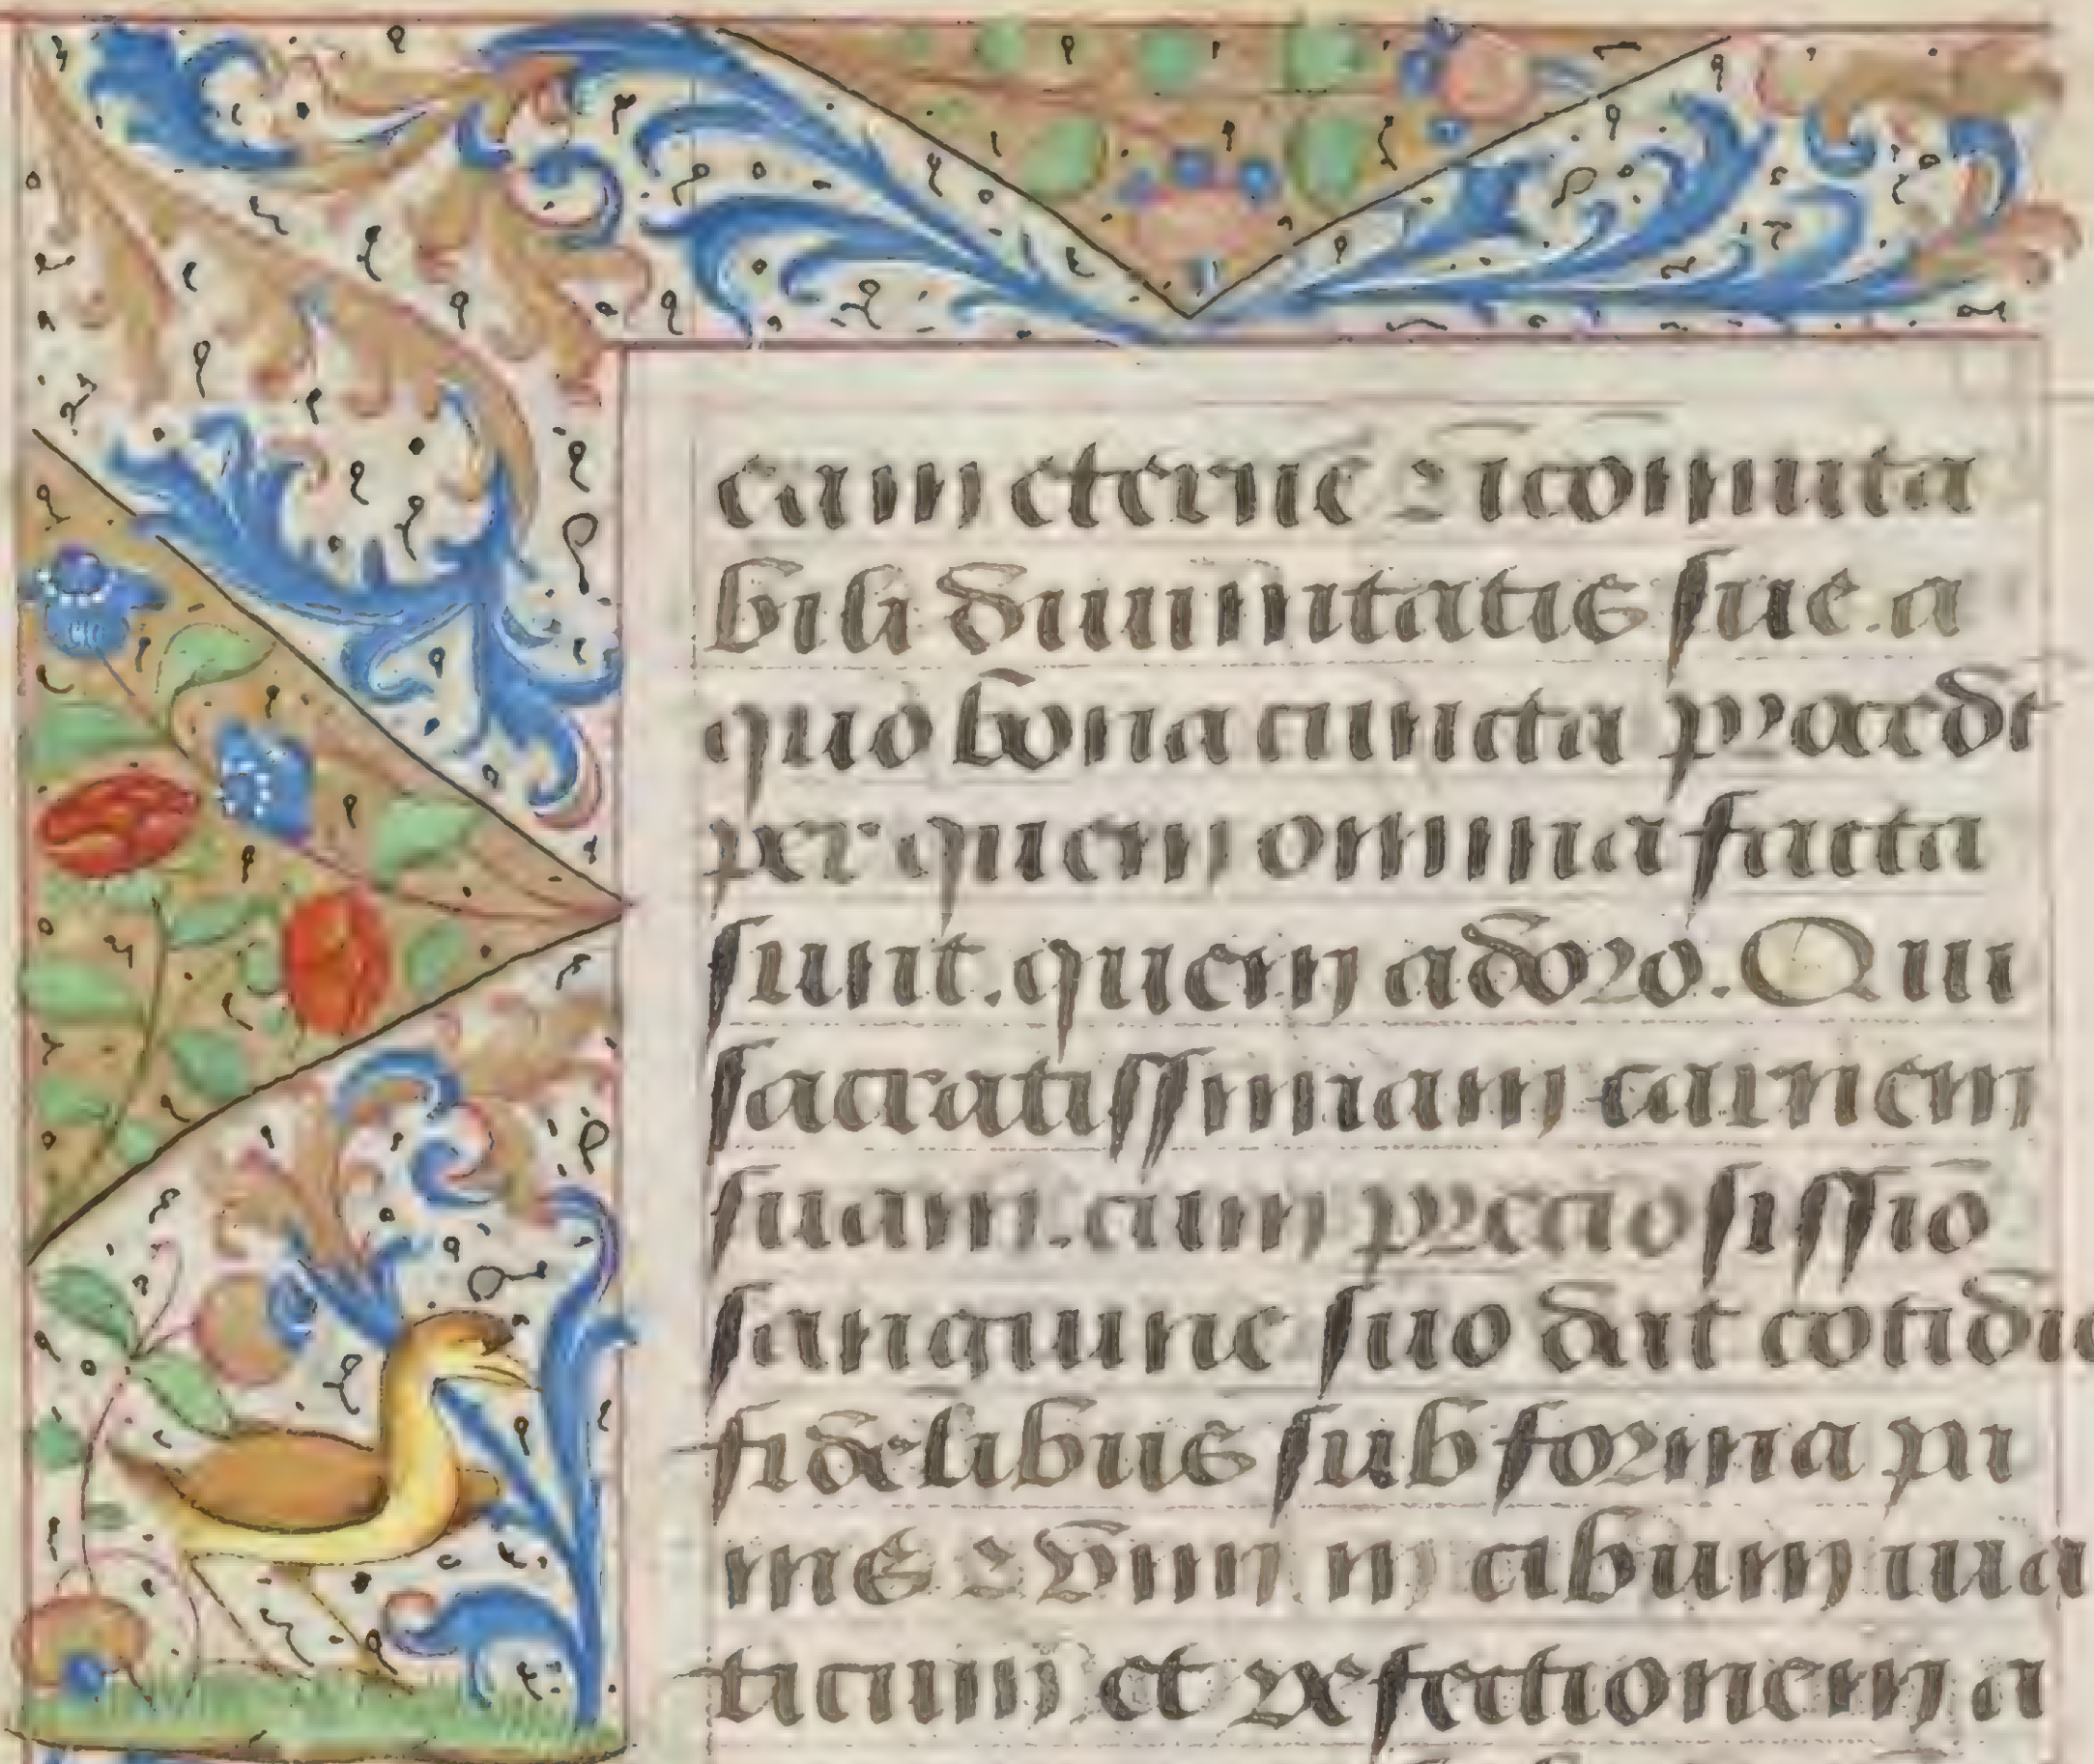 eam eterne ⁊ īco̅muta
bili diuinitatis sue. a
quo bona cuncta p̲cedūt
per quem omnia facta
sunt. quem adoro. Qui
sacratissimam carnem
suam. cum preciosissīo
sanguine suo dat cotidie
fidelibus sub forma pa
nis ⁊ vini in cibum uia
ticum et refectionem a